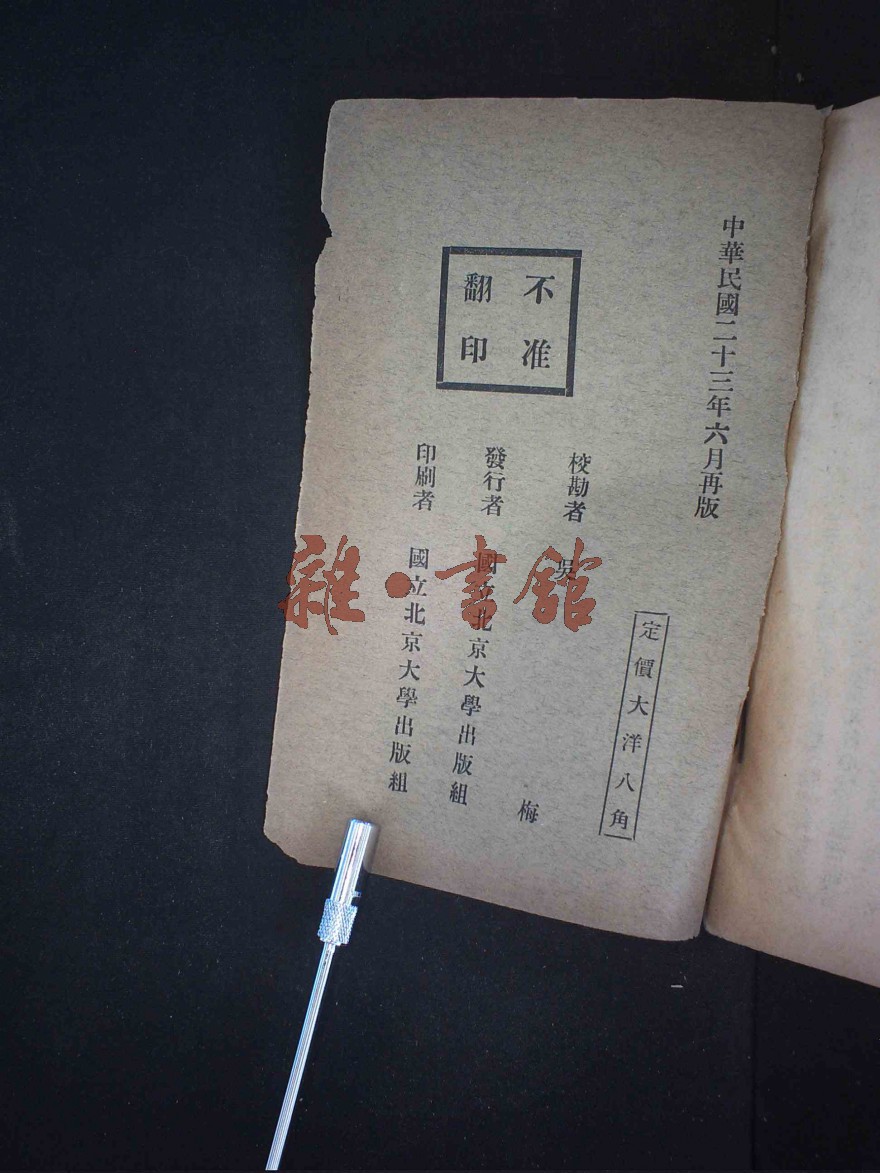 中華民國二十三年六月再版
不准
翻印
定價大洋八角
校勘者 吳 梅
發行者 國立北京大學出版組
印刷者 國立北京大學出版組
雜·書館